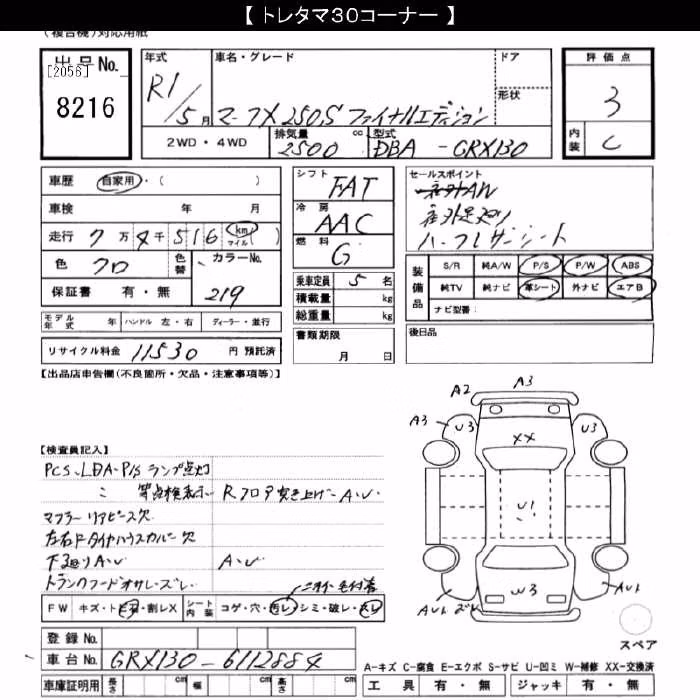 【 トレタマ30コーナー 】
(複合機)対応用紙
出品No.
[2056]
8216
年式
R1/5月
車名・グレード
マークX 250S ファイナルエディション
ドア
形状
2WD・4WD
排気量 2500 cc
型式 DBA-GRX130
評価点
3
内装 C
車歴 自家用・( )
車検 年 月
走行 7万4千516 km マイル ( )
色 クロ
色替
カラーNo. 219
保証書 有・無
モデル年式 年 ハンドル 左・右 ディーラー・並行
リサイクル料金 11530 円 預託済
シフト FAT
冷房 AAC
燃料 G
乗車定員 5 名
積載量 kg
総重量 kg
書類期限
月 日
セールスポイント
社外AW
ハーフレザーシート
装備品
S/R 純A/W P/S P/W ABS
純TV 純ナビ 革シート 外ナビ エアB
ナビ型番:
後日品
【出品店申告欄(不良箇所・欠品・注意事項等)】
【検査員記入】
PCS、LDA・P/S ランプ点灯
等点検表示 Rフロア突き上げ A・U
マフラーリアピース欠
左右Fタイヤハウスカバー欠
下廻りA・U A・U
トランクフードオサレ・ズレ
FW キズ・トビ石・割レX シート内装 コゲ・穴・汚レ・シミ・破レ・スレ
登録No.
車台No. GRX130-6112884
車庫証明用 長さ cm 幅 cm 高さ cm
A2 A3
A3 U3 U3
XX
U1
W3
AUt ズレ AUt
スペア
A-キズ C-腐食 E-エクボ S-サビ U-凹ミ W-補修 XX-交換済
工具 有・無 ジャッキ 有・無